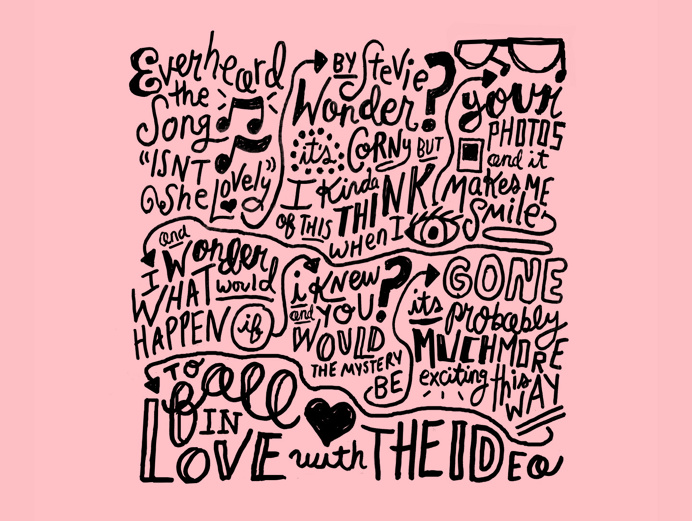 Everheard
the
Song
"ISNT
She Lovely"
BY Stevie
Wonder?
it's CORNY BUT
I Kinda THINK
of THIS
when I
your
PHOTOS
and it
MAKES ME
Smile
and
I Wonder
WHAT would
HAPPEN if
i KNEW
YOU?
and
WOULD
THE MYSTERY
BE
GONE
its probably
MUCH MORE
exciting this
WAY
TO fall
IN
LOVE with THE IDEa